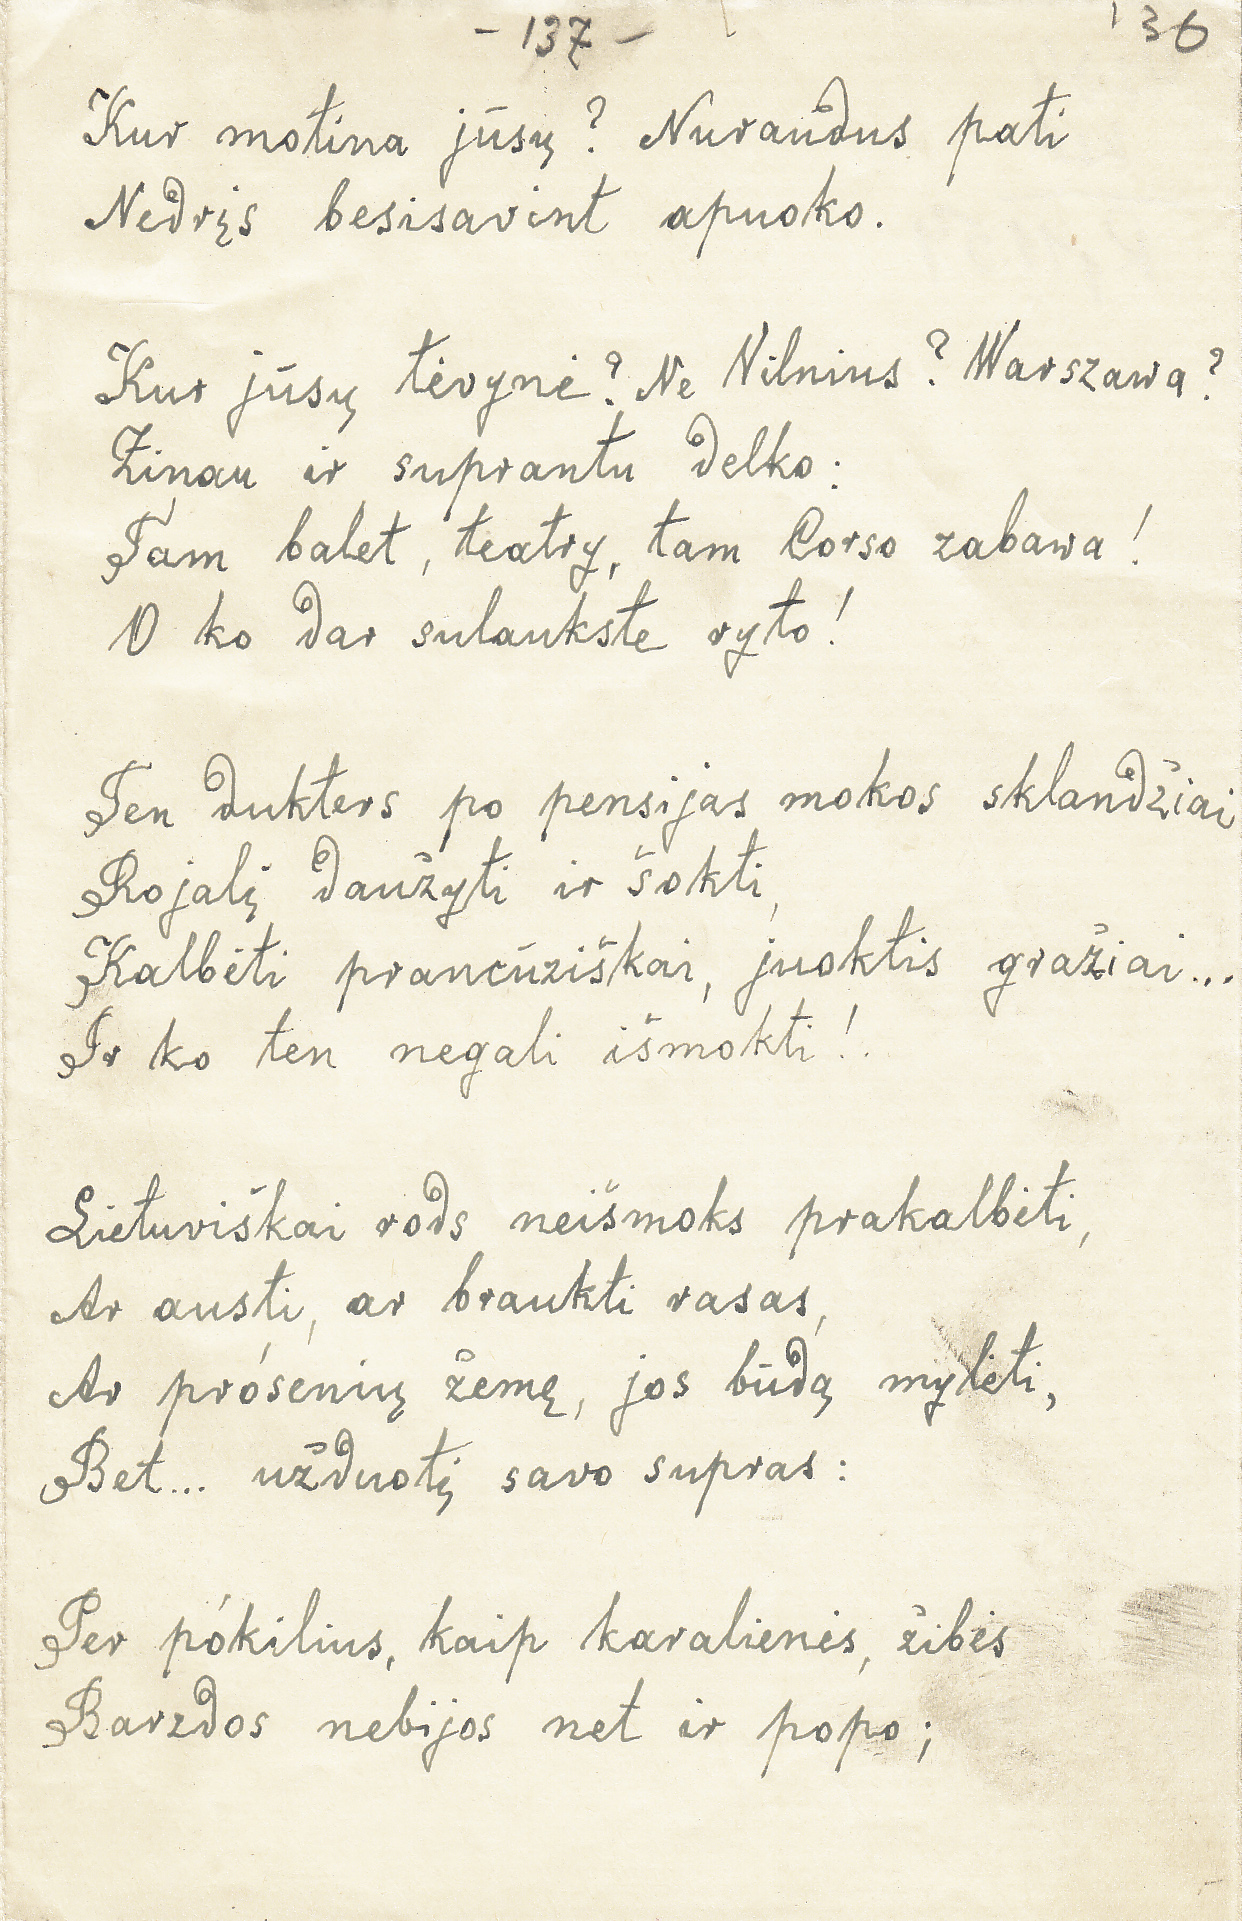 - 137 -
136
Kur motina jūsų? Nuraudus pati
Nedrįs besisavint apuoko.
Kur jūsų tėvynė? Ne Vilnius? Warszawa?
Žinau ir suprantu delko:
Tam balet, teatry, tam Corso zabawa!
O ko dar sulaukste ryto!
Ten dukters po pensijas mokos sklandžiai
Rojalį daužyti ir šokti,
Kalbėti prancūziškai, juoktis gražiai...
Ir ko ten negali išmokti!.
Lietuviškai rods neišmoks prakalbėti,
Ar austi, ar braukti rasas,
Ar prósenių žemę, jos būdą mylėti,
Bet... užduotį savo supras:
Per pókilius, kaip karalienės, žibės
Barzdos nebijos net ir popo;